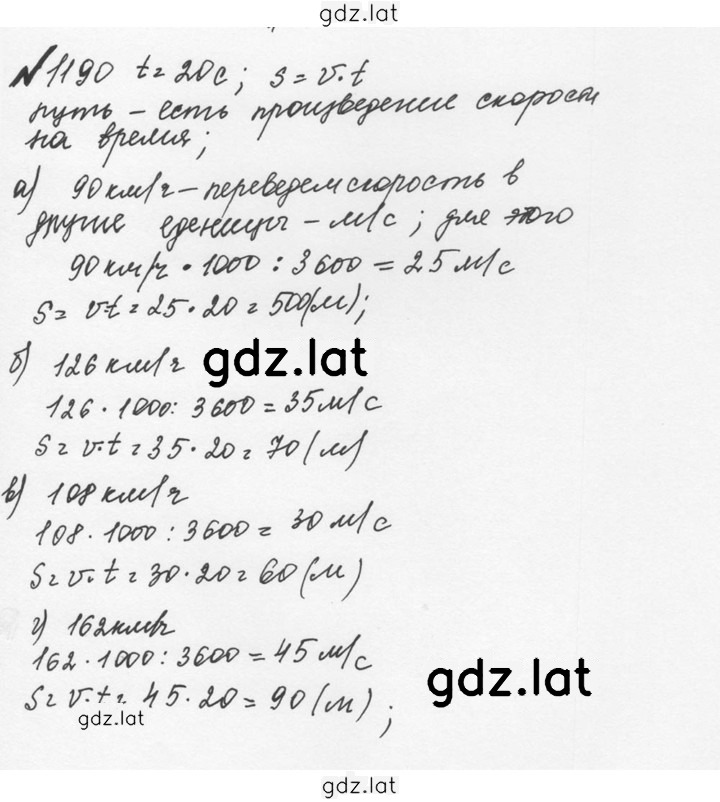 gdz.lat
№1190 t = 20с; s = v·t
путь – есть произведение скорости
на время;
а) 90 км/ч – переведем скорость в
другие еденицы – м/с; для этого
90 км/ч · 1000 : 3600 = 25 м/с
s = vt = 25 · 20 = 500(м);
б) 126 км/ч
gdz.lat
126 · 1000 : 3600 = 35 м/с
s = v·t = 35 · 20 = 70 (м)
в) 108 км/ч
108 · 1000 : 3600 = 30 м/с
s = v·t = 30 · 20 = 60 (м)
г) 162 км/ч
162 · 1000 : 3600 = 45 м/с
gdz.lat
s = v·t = 45 · 20 = 90 (м);
gdz.lat
gdz.lat